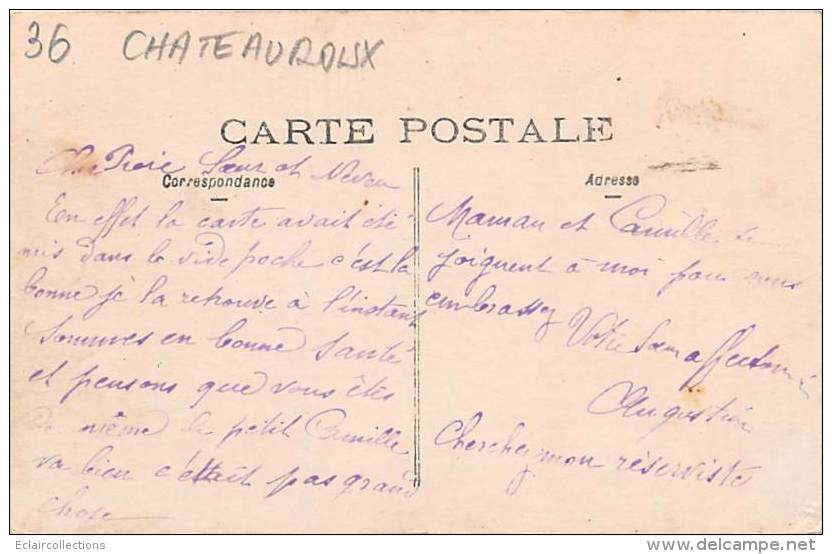 36 CHATEAUROUX
CARTE POSTALE
Soeur et Neveu
Correspondance
En effet la carte avait été
mis dans le vide poche c'est la
bonne je la retrouve à l'instant
Sommes en bonne santé
et pensons que vous êtes
de même le petit Camille
va bien c'était pas grand
chose
Adresse
Maman et Camille se
joignent à moi pour vous
embrassez
Votre Soeur affectionnée
Augustine
Cherchez mon réserviste
Eclaircollections
www.delcampe.net